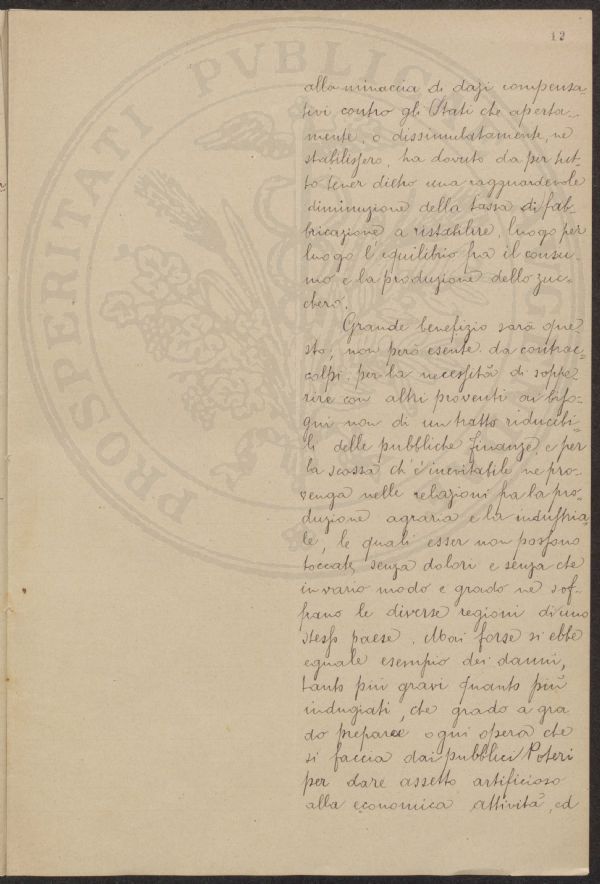 12
alla minaccia di dazi compensa-
tivi contro gli Stati che aperta-
mente, o dissimulatamente, ne
stabilissero, ha dovuto da per tut-
to tener dietro una ragguardevole
diminuzione della tassa di fab-
bricazione a ristabilire, luogo per
luogo l'equilibrio fra il consu-
mo e la produzione dello zuc-
chero.
Grande benefizio sarà que-
sto, non però esente da contrac-
colpi per la necessità di soppe-
rire con altri proventi ai biso-
gni non di un tratto riducibi-
li delle pubbliche finanze, e per
la scossa ch'è inevitabile ne pro-
venga nelle relazioni fra la pro-
duzione agraria e la industria-
le, le quali esser non possono
toccate senza dolori e senza che
in vario modo e grado ne sof-
frano le diverse regioni di uno
stesso paese. Mai forse si ebbe
eguale esempio dei danni,
tanto più gravi quanto più
indugiati, che grado a gra
do prepara ogni opera che
si faccia dai pubblici Poteri
per dare assetto artificioso
alla economica attività, ed
PROSPERITATI PVBLIC